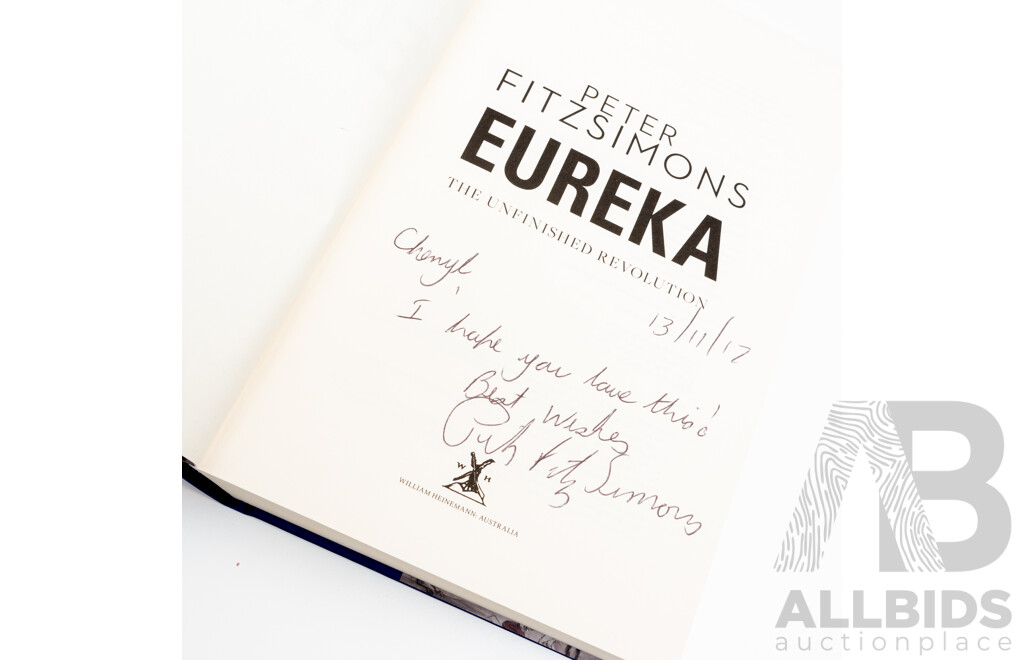 PETER
FITZSIMONS
EUREKA
THE UNFINISHED REVOLUTION
Cheryl,
13/11/12
I hope you love this!
Best Wishes
Peter FitzSimons
W H
WILLIAM HEINEMANN: AUSTRALIA
AB
ALLBIDS
auctionplace